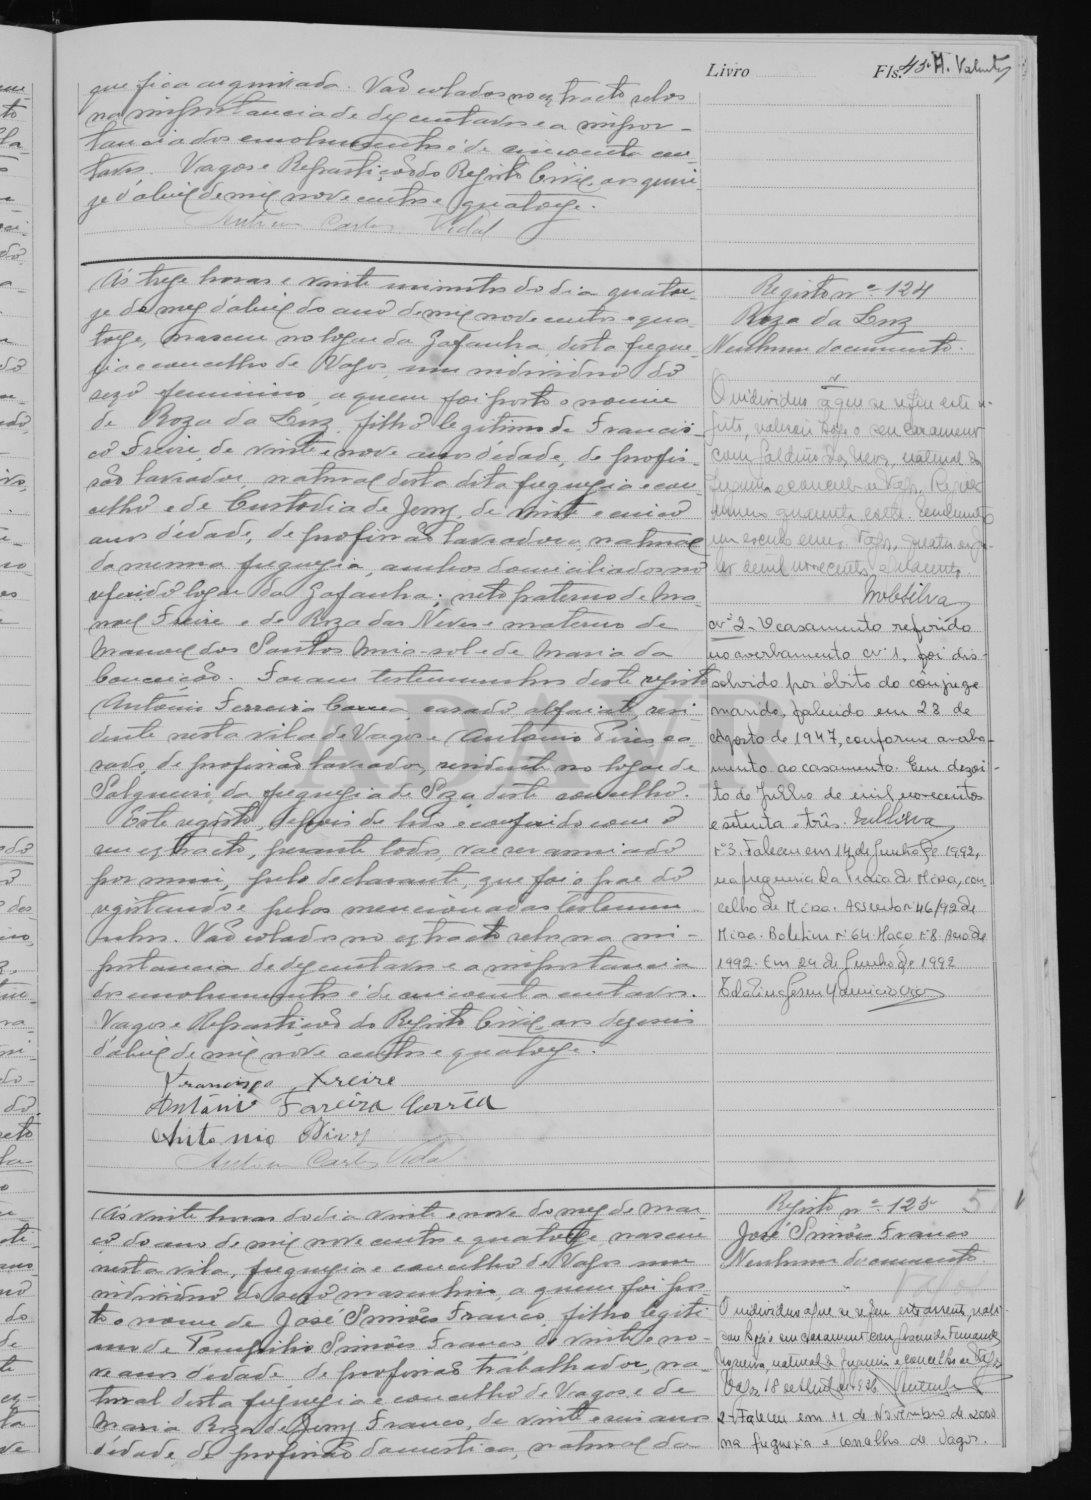 Livro Fls. 45 A. Valente
que fica arquivada. Vão colados no extracto selos
na importancia de dez centavos e a impor-
tancia dos emolumentos é de cincoenta cen-
tavos. Vagos e Repartição do Registo Civil, aos quin-
ze d'abril de mil nove centos e quatorze.
Antonio Carlos Vidal
Ás treze horas e vinte minutos do dia quator-
ze do mez d'abril do ano de mil nove centos e qua-
torze, nasceu no logar da Gafanha, desta fregue-
zia e concelho de Vagos, um individuo do
sexo feminino, a quem foi posto o nome
de Roza da Luz, filho legitimo de Francis-
co Freire, de vinte e nove anos d'édade, de profis-
são lavrador, natural desta dita freguezia e con-
celho e de Custodia de Jezus, de vinte e cinco
anos d'édade, de profissão lavradora, natural
da mesma freguezia, ambos domiciliados no
referido logar da Gafanha; neto paterno de Ma-
noel Freire e de Roza das Neves e materno de
Manoel dos Santos Mira-sol e de Maria da
Conceição. Foram testemunhas deste registo
Antonio Ferreira Correa, casado, alfaiate, resi-
dente nesta vila de Vagos e Antonio Pires, ca-
sado, de profissão lavrador, residente no logar de
Salgueiro, da freguezia de Soza, deste concelho.
Este registo, depois de lido e conferido com o
seu extracto, perante todos, vae ser assinado
por mim, pelo declarante, que foi o pae do
registando e pelas mencionadas testemu-
nhas. Vão colados no extracto selos na im-
portancia de dez centavos e a importancia
dos emolumentos é de cincoenta centavos.
Vagos e Repartição do Registo Civil, aos dezeseis
d'abril de mil nove centos e quatorze.
Francisco Freire
António Fareira Corrêa
Antonio Pires
Antonio Carlos Vidal
Registo nº 124
Roza da Luz
Nenhum documento.
O individuo a que se refere este re-
gisto, realisou hoje o seu casamento
com Galdino das Neves, natural da
freguezia e concelho de Vagos, Registo
numero quarenta e sete. Emolumento
um escudo Vagos, quatro
de mil novecentos e
nº 2 - O casamento referido
no averbamento nº 1, foi dis-
solvido por óbito do cônjuge
marido, falecido em 28 de
Agosto de 1947, conforme averba-
mento ao casamento. Em dezoi-
to de Julho de mil novecentos
e setenta e três.
nº 3. Faleceu em 14 de Junho de 1992,
na freguesia da Praia de Mira, con-
celho de Mira. Assento nº 46/92 de
Mira. Boletim nº 64. Maço nº 8. Ano de
1992. Em 24 de Junho de 1992
Ás vinte horas do dia vinte e nove do mez de mar-
ço do ano de mil nove centos e quatorze nasceu
nesta vila, freguezia e concelho de Vagos um
individuo do sexo masculino, a quem foi pos-
to o nome de José Simões Franco, filho legiti-
mo de Pompilio Simões Franco, de vinte e no-
ve anos d'édade, de profissão trabalhador, na-
tural desta freguezia e concelho de Vagos e de
Maria Roza de Jezus Franco, de vinte e seis anos
d'édade, de profissão domestica, natural da
Registo nº 125 5
José Simões Franco
Nenhum documento.
Vagos
O individuo a que se refere este assento, reali-
sou hoje o seu casamento com Fernandes
natural da freguezia e concelho de Vagos
Vagos, 18 de 1936
2 - Faleceu em 11 de Novembro de 2000
na freguesia e concelho de Vagos.
ADAVR